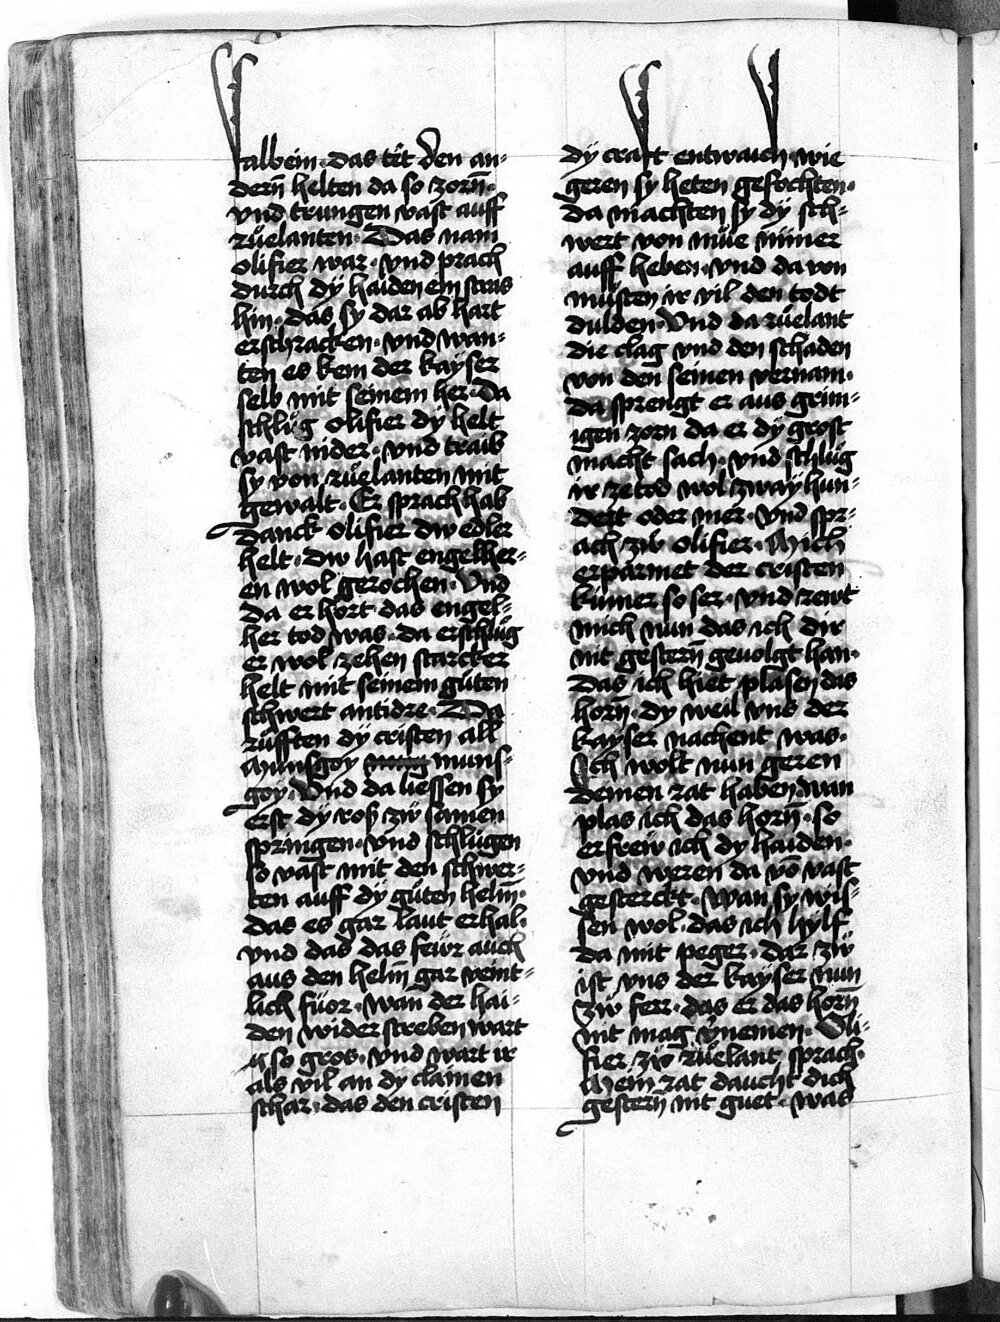 talbein · das tet den an-
dern̄ helten da so zorn̄ ·
vnd trungen vast auff
rüelanten · Das nam
olifier war · vnd prach
durch dy haiden ein stras
hin · das sy dar ab hart
erschracken · vnd wan-
ten es kem der kayser
selb mit seinem her · Da
schlüg olifier dy helt
vast nider · vnd traib
sy von rüelanten mit
gewalt · Er sprach hab
danck olifier dw edler
helt · dw hast engelher-
en wol gerochen · Vnd
da er hort das engel-
her tod was · da erschlüg
er wol zehen starcker
helt mit seinem güten
schwert antidre · Da
rüfften dy cristen all
munsgoy muns-
goy · Vnd da liessen sy
erst dy roß zw samen
springen · vnd schlügen
so vast mit den schwer-
ten auff dy güten helm̄ ·
das es gar laut erhal ·
vnd das das feẅr auch
aus den helm̄ gar veint-
lich füor · wan der hai-
den wider streben wart
so gros · vnd wart ir
als vil an dy clainen
schar · das den cristen
dy craft entwaich · wie
geren sy heten gefochten ·
da machten sy dy sch-
wert von müe nimer
auff heben · vnd da von
müsten ir vil den todt
dulden · Vnd da rüelant
die clag vnd den schaden
von den seinen vernam ·
da sprengt er aus grim-
igen zorn da er dy grost
macht sach · vnd schlüg
ir ze tod wol zway hun-
dert oder mer · Vnd spr-
ach zw olifier · Mich
erparmet der cristen
kumer so ser · vnd rewt
mich nun das ich dir
nit gestern̄ gevolgt han ·
Das ich hiet plasen das
horn̄ · dy weil vns der
kayser nachent was ·
Ich wolt nun geren
deinen rat haben wan
plas ich das horn̄ · so
erfrew ich dy haiden ·
vnd weren da vō vast
gesterckt · wan sy wis-
sen wol · das ich hylf
da mit peger · dar zw
ist vns der kayser nun
zw ferr · das er das horn̄
nit mag v̈nemen · Oli-
fier zw rüelant sprach ·
Mein rat daucht dich
gestern nit guet · was